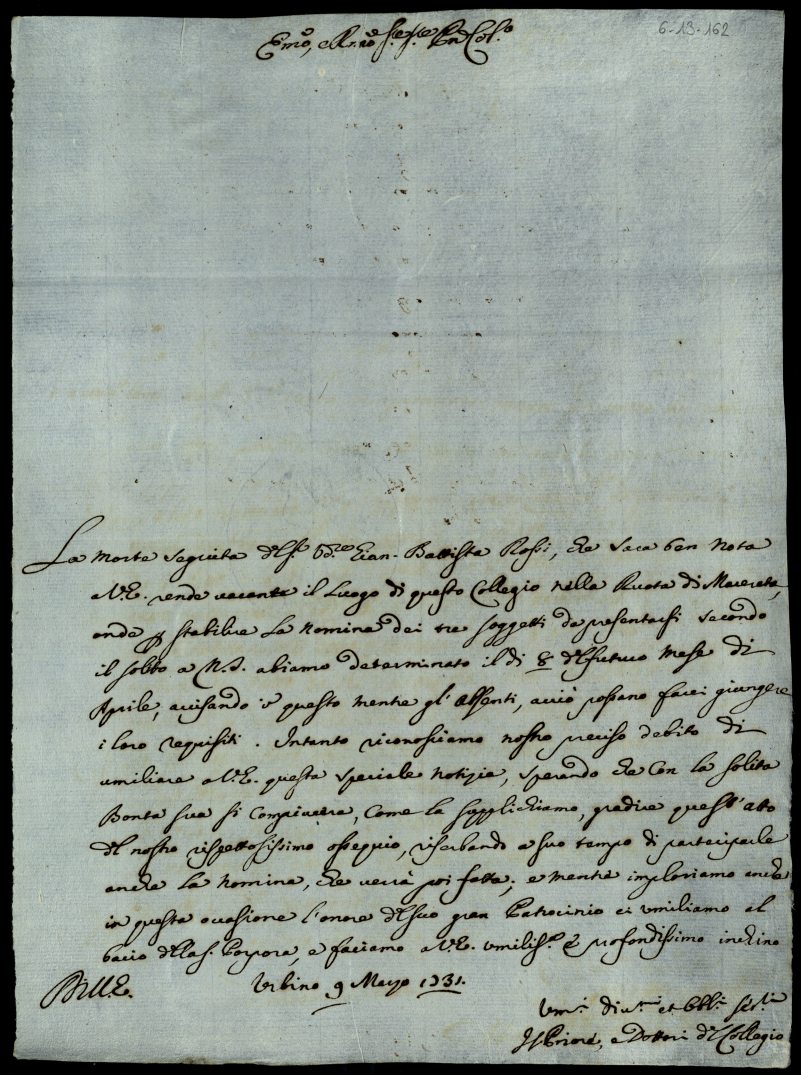 6-13-162
Emo, e Rmo Sig.e Sig.e Pne Col.mo
La morte seguita del S.r Gian-Battista Rossi, che sara ben nota
a V.E. rende vacante il Luogo di questo Collegio nella Ruota di Macerata,
onde p stabilire la nomina dei tre soggetti da presentarsi secondo
il solito a N.S. abiamo determinato il di 8 del futuro Mese di
Aprile, avisando in questo mentre gl' assenti, acciò possano farci giungere
i loro requisiti. Intanto riconosciamo nostro preciso debito di
umiliare a V.E. questa speciale notizia, sperando che con la solita
Bontà sua si compiacerà, come la supplichiamo, gradire quest' atto
del nostro rispettosissimo ossequio, riserbando a suo tempo di parteciparle
anche la nomina, che verrà poi fatta; e mentre imploriamo anche
in questa occasione l'onore del suo gran Patrocinio ci umiliamo al
bacio della S. Porpora, e facciamo a V.E. umiliss.o e profondissimo inchino
Di V.E. Urbino 9 Marzo 1731.
Um.i Div.mi et Obbl.i Ser.i
Il Priore, e Dottori del Collegio